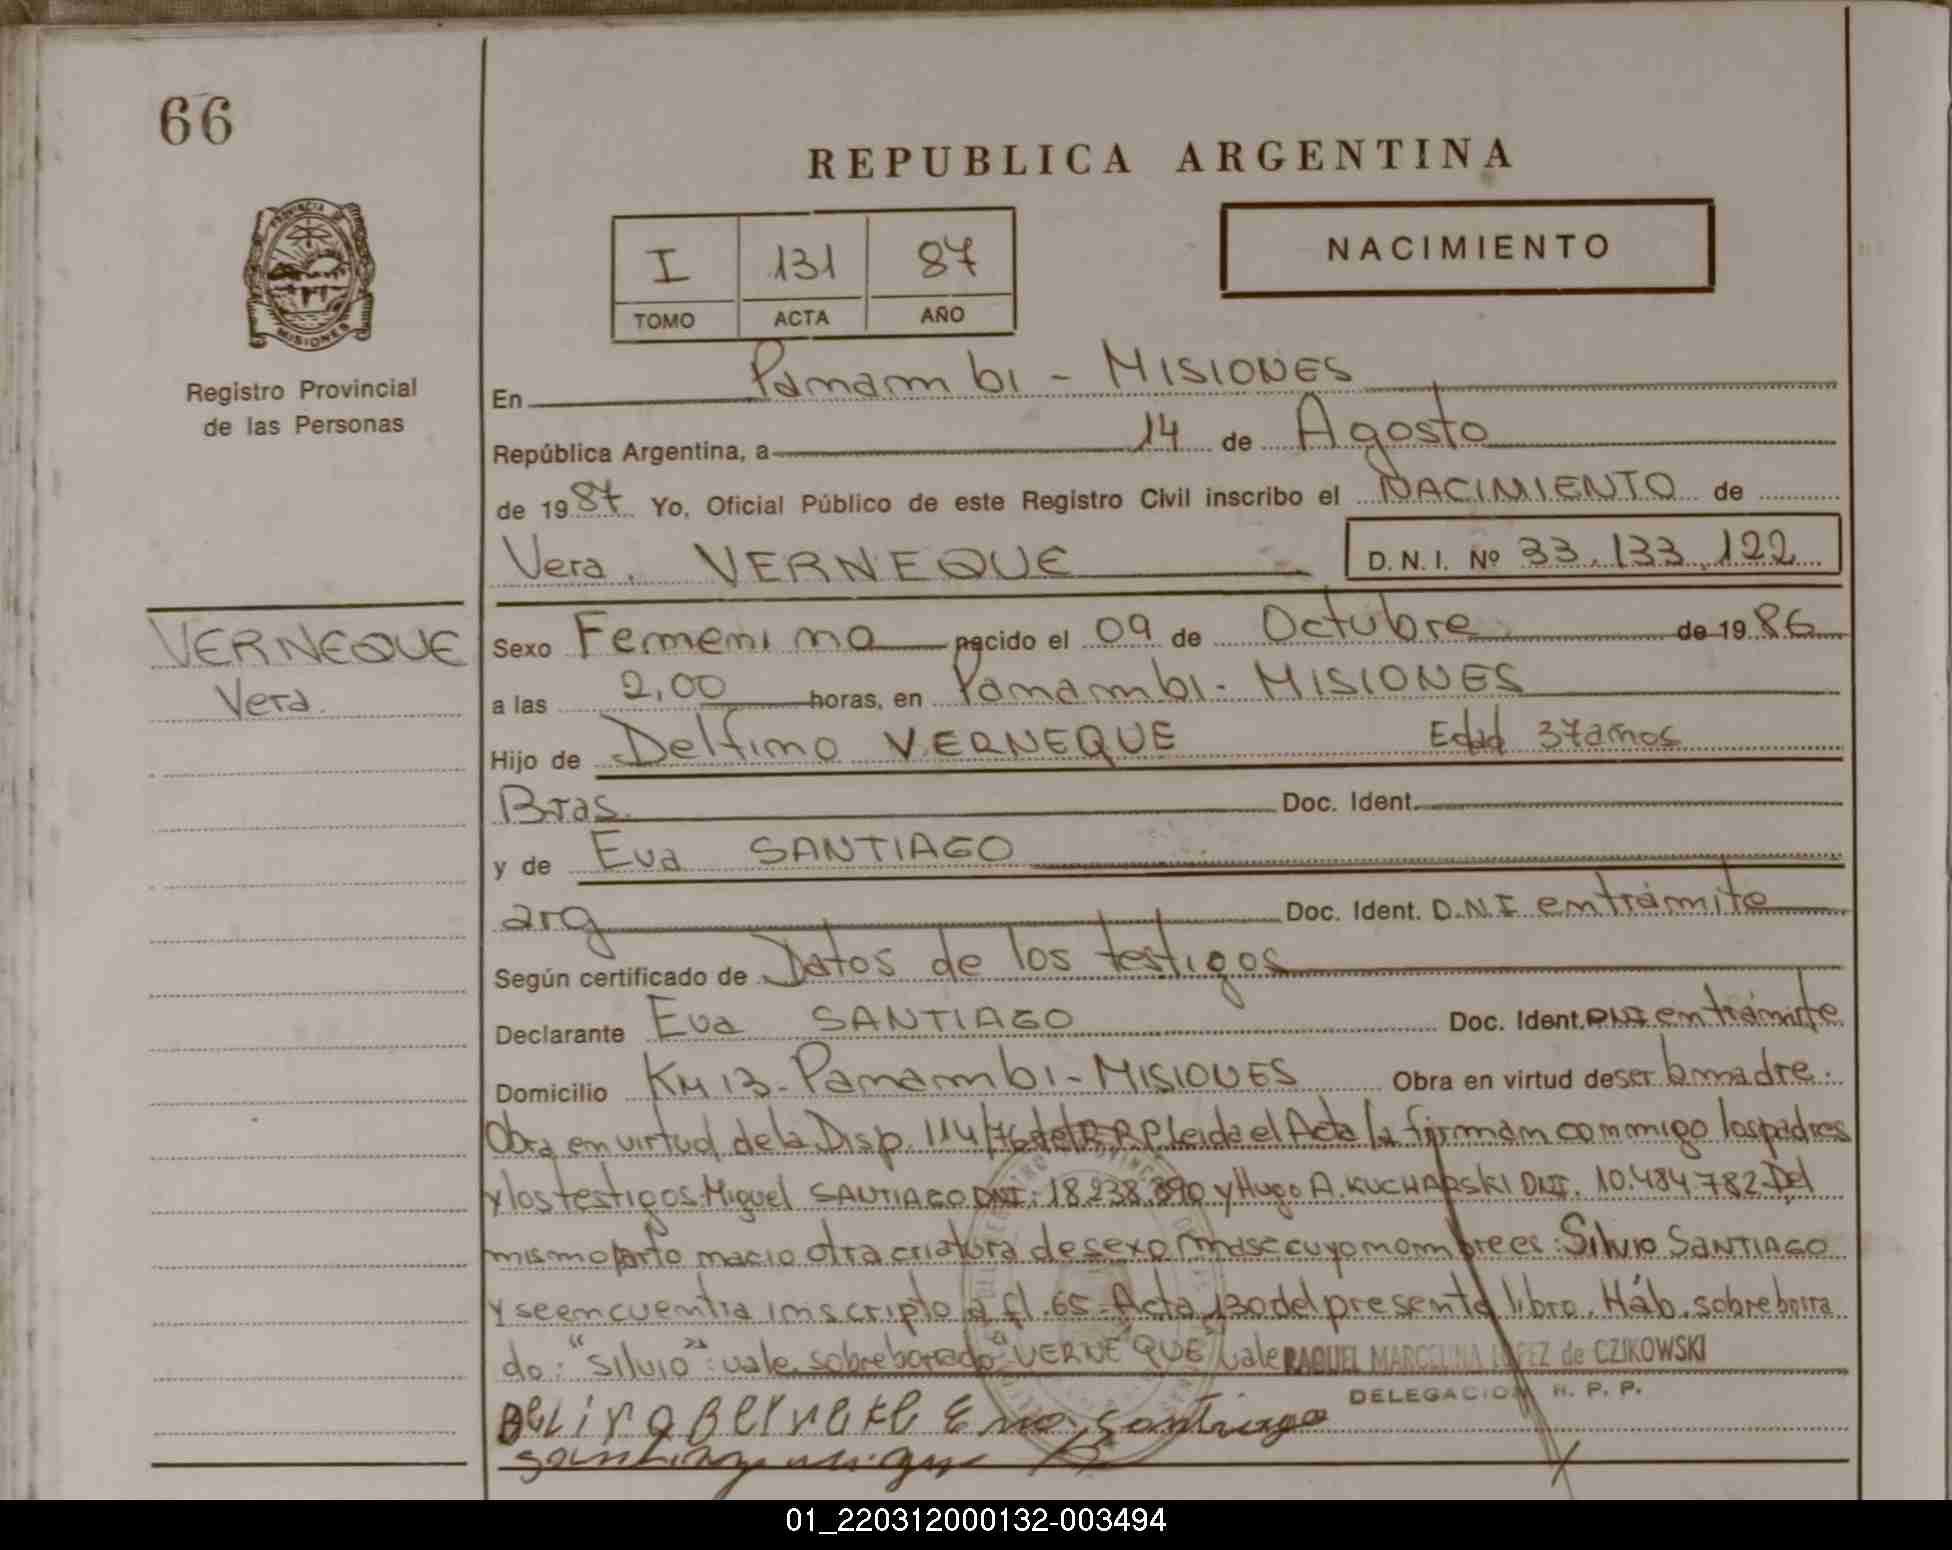 66
REPUBLICA ARGENTINA
PROVINCIA DE
MISIONES
Registro Provincial
de las Personas
I 131 87
TOMO ACTA AÑO
NACIMIENTO
En Panambi - MISIONES
República Argentina, a 14 de Agosto
de 1987 Yo, Oficial Público de este Registro Civil inscribo el NACIMIENTO de
Vera. VERNEQUE D. N. I. Nº 33.133.122
VERNEQUE
Vera.
Sexo Femenino nacido el 09 de Octubre de 1986
a las 2,00 horas, en Panambi - MISIONES
Hijo de Delfino VERNEQUE Edad 37 años
Bras. Doc. Ident.
y de Eva SANTIAGO
arg Doc. Ident. D.N.I en trámite
Según certificado de Datos de los testigos
Declarante Eva SANTIAGO Doc. Ident. DNI en trámite
Domicilio KM 13 - Panambi - MISIONES Obra en virtud de ser la madre.
Obra en virtud de la Disp. 114/76 del R.P.P Leida el Acta la firman conmigo los padres
y los testigos Miguel SANTIAGO DNI: 18.238.390 y Hugo A. KUCHARSKI DNI. 10.484.782 Del
mismo parto nacio otra criatura de sexo masc cuyo nombre es: Silvio SANTIAGO
y se encuentra inscripto a fl. 65 - Acta 130 del presente libro. Háb. sobreborra
do: "Silvio": vale. sobreborrado "VERNEQUE" vale RAQUEL MARCELINA LOPEZ de CZIKOWSKI
DELEGACION R. P. P.
Eva Santiago
01_220312000132-003494